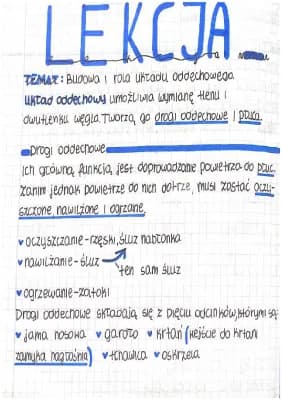 LEKCJA
TEMAT: Budowa i rola układu oddechowego
Układ oddechowy umożliwia wymianę tlenu i
dwutlenku węgla. Tworzą go drogi oddechowe i płuca.
Drogi oddechowe
Ich główną funkcją jest doprowadzanie powietrza do płuc.
Zanim jednak powietrze do nich dotrze, musi zostać oczy-
szczone, nawilżone i ogrzane.
oczyszczanie-rzęski, śluz nabłonka
nawilżanie-śluz
ten sam śluz
ogrzewanie-zatoki
Drogi oddechowe składają się z pięciu odcinków, którymi są:
jama nosowa gardło krtań (wejście do krtani
zamyka nagłośnia) tchawica oskrzela